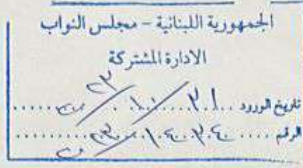 الجمهورية اللبنانية - مجلس النواب
الادارة المشتركة
تاريخ الورود
الرقم